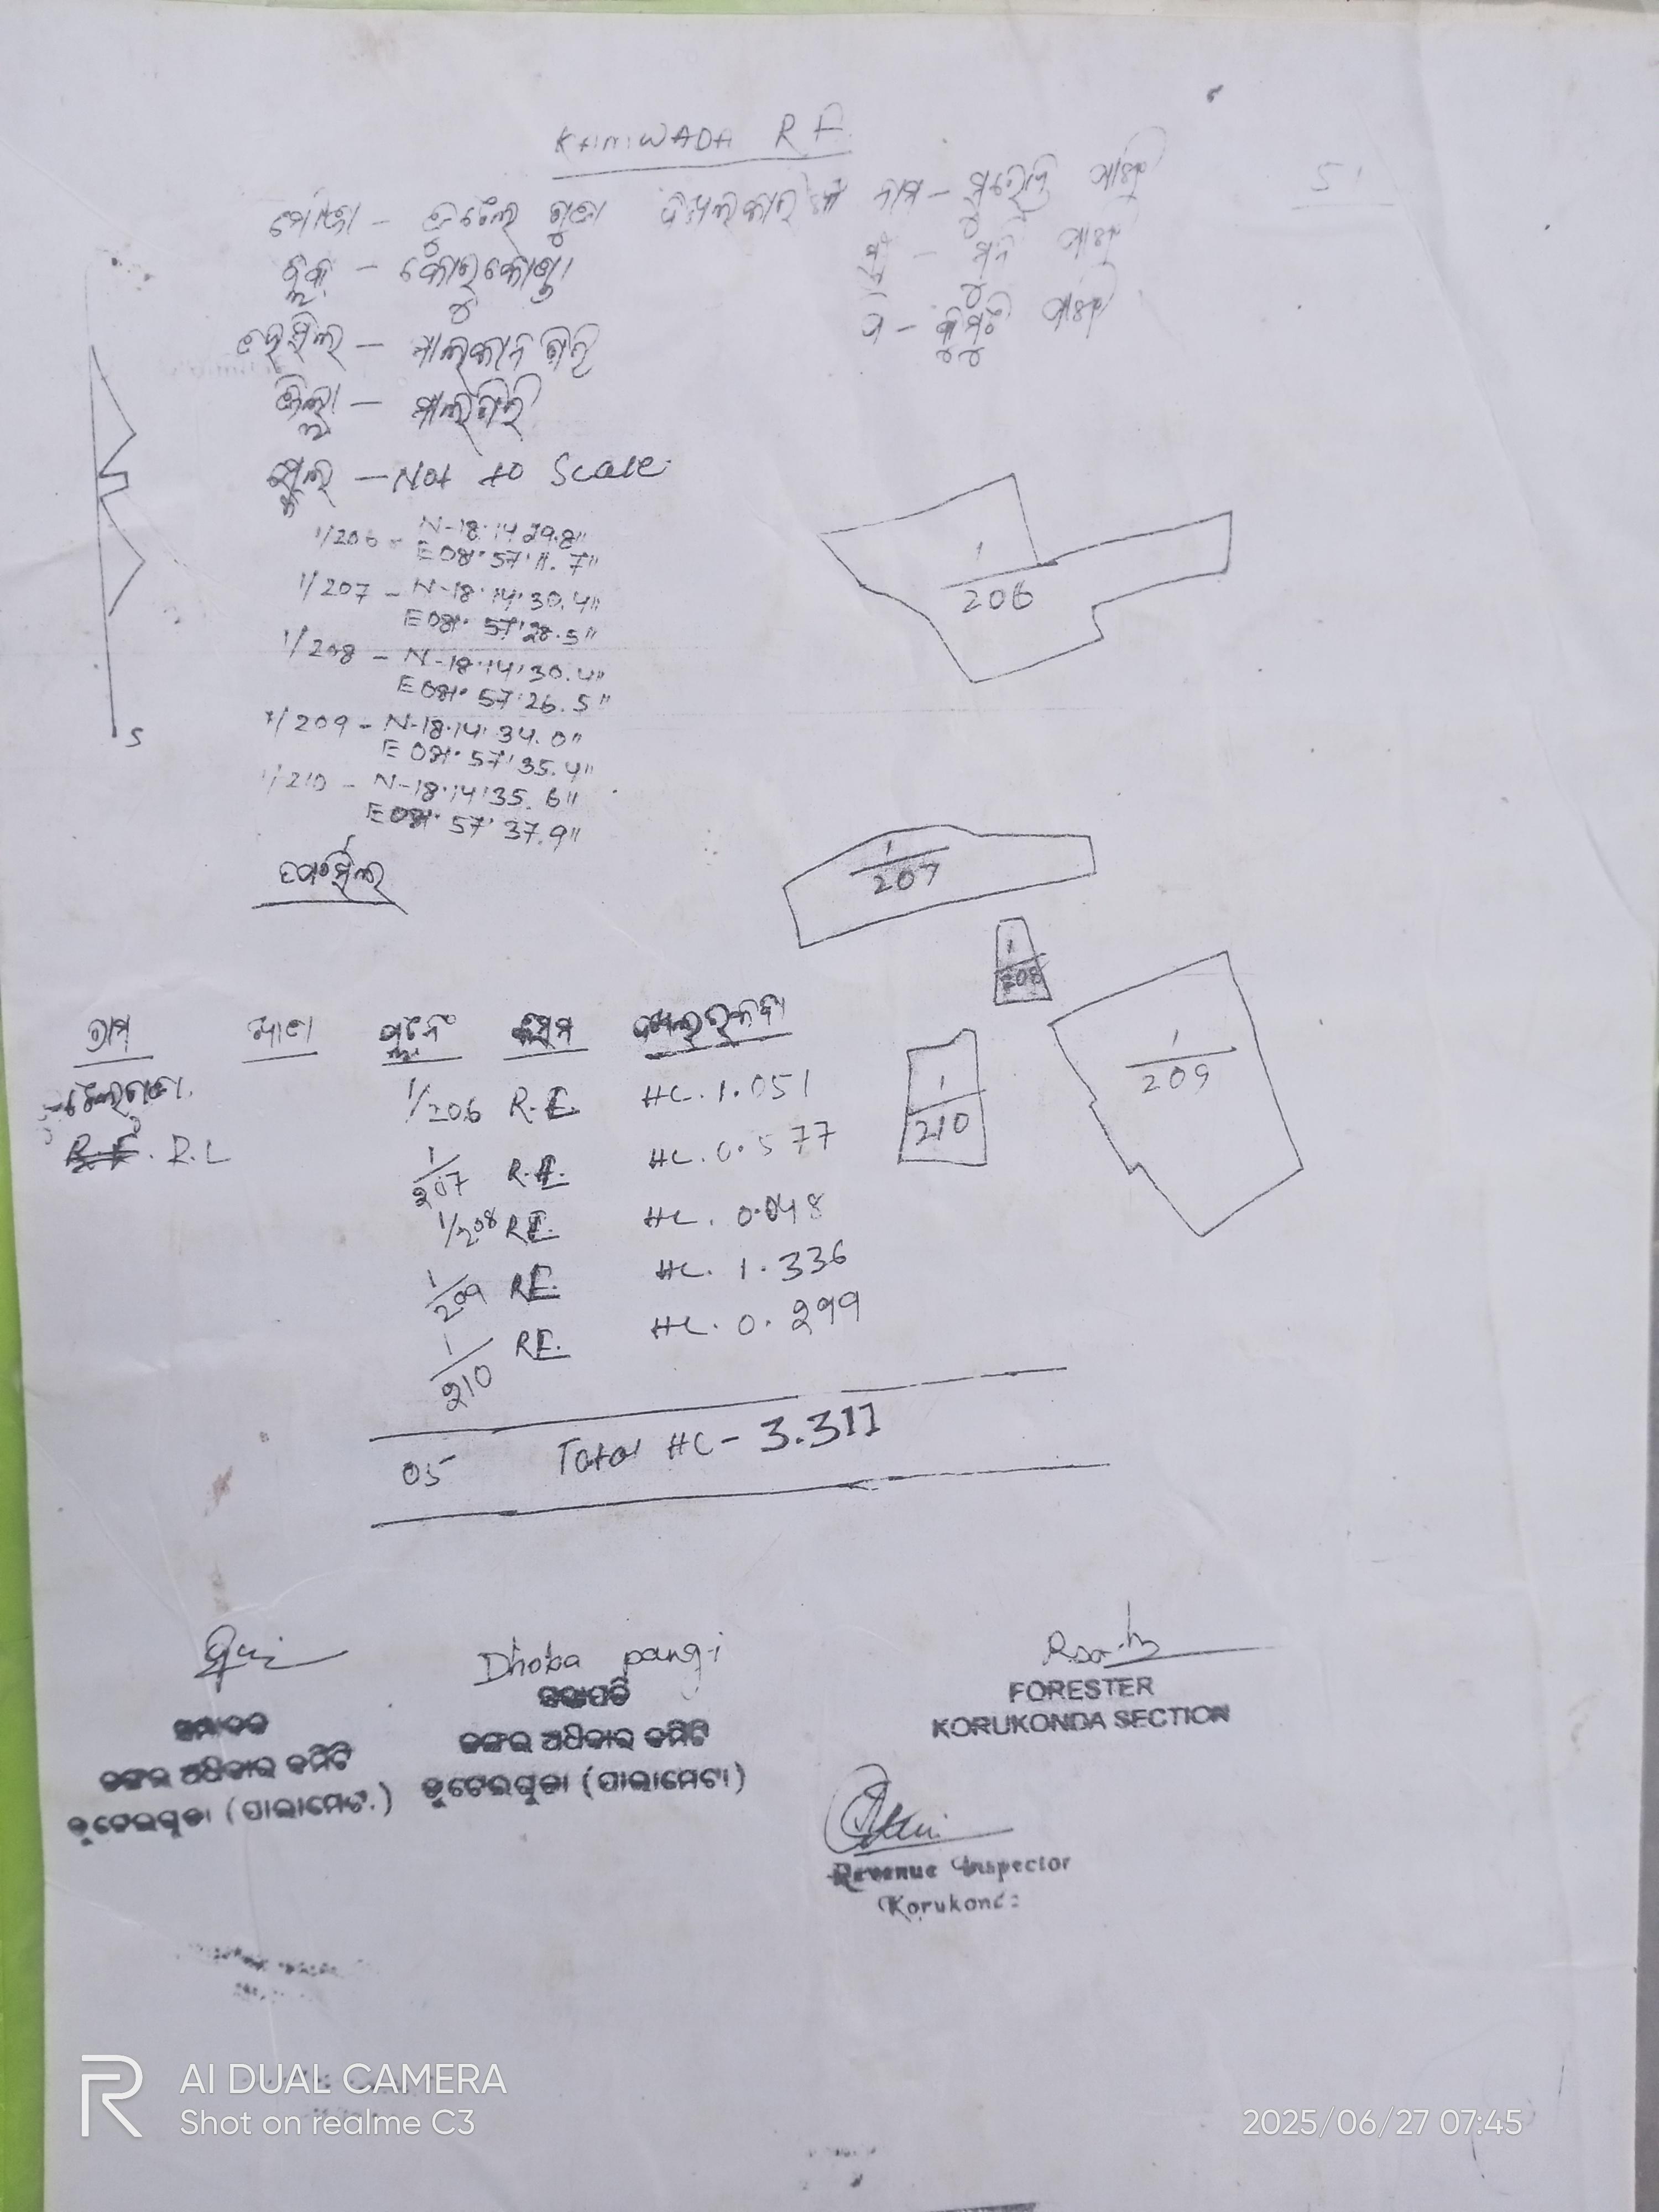 KAMWADA R F.
ମୌଜା – ଡୁଟେଲ ଗୁଡା ଦଖଲକାର ନାମ –
ବ୍ଲକ – କୋରୁକୋଣ୍ଡା
ତହସିଲ – ମାଲକାନଗିରି
ଜିଲ୍ଲା – ମାଲ୍‌ଗିରି
ସ୍କେଲ – Not to Scale
1/206 - N-18·14 29.8"
E 081° 57' 11.7"
1/207 - N-18·14' 30.4"
E 081° 57' 28.5"
1/208 - N-18·14' 30.4"
E 081° 57' 26.5"
1/209 - N-18·14' 34.0"
E 081° 57' 35.4"
1/210 - N-18·14' 35.6"
E 081° 57' 37.9"
S
1/206
1/207
1/208
1/209
1/210
ଗ୍ରାମ ଖାତା ପ୍ଲଟନଂ କିସମ ଦଖଲରକବା
1/206 R.F. HC. 1.051
R.L
1/207 R.F. HC. 0.577
1/208 RF. HC. 0.048
1/209 RF. HC. 1.336
1/210 RF. HC. 0.299
05 Total HC - 3.311
Dhoba pangi
ସମ୍ପାଦକ
ଜଙ୍ଗଲ ଅଧିକାର କମିଟି
ଡୁଟେଲଗୁଡା (ପାଲାମେଟା)
ସଭାପତି
ଜଙ୍ଗଲ ଅଧିକାର କମିଟି
ଡୁଟେଲଗୁଡା (ପାଲାମେଟା)
FORESTER
KORUKONDA SECTION
Revenue Inspector
Korukonda
AI DUAL CAMERA
Shot on realme C3
2025/06/27 07:45